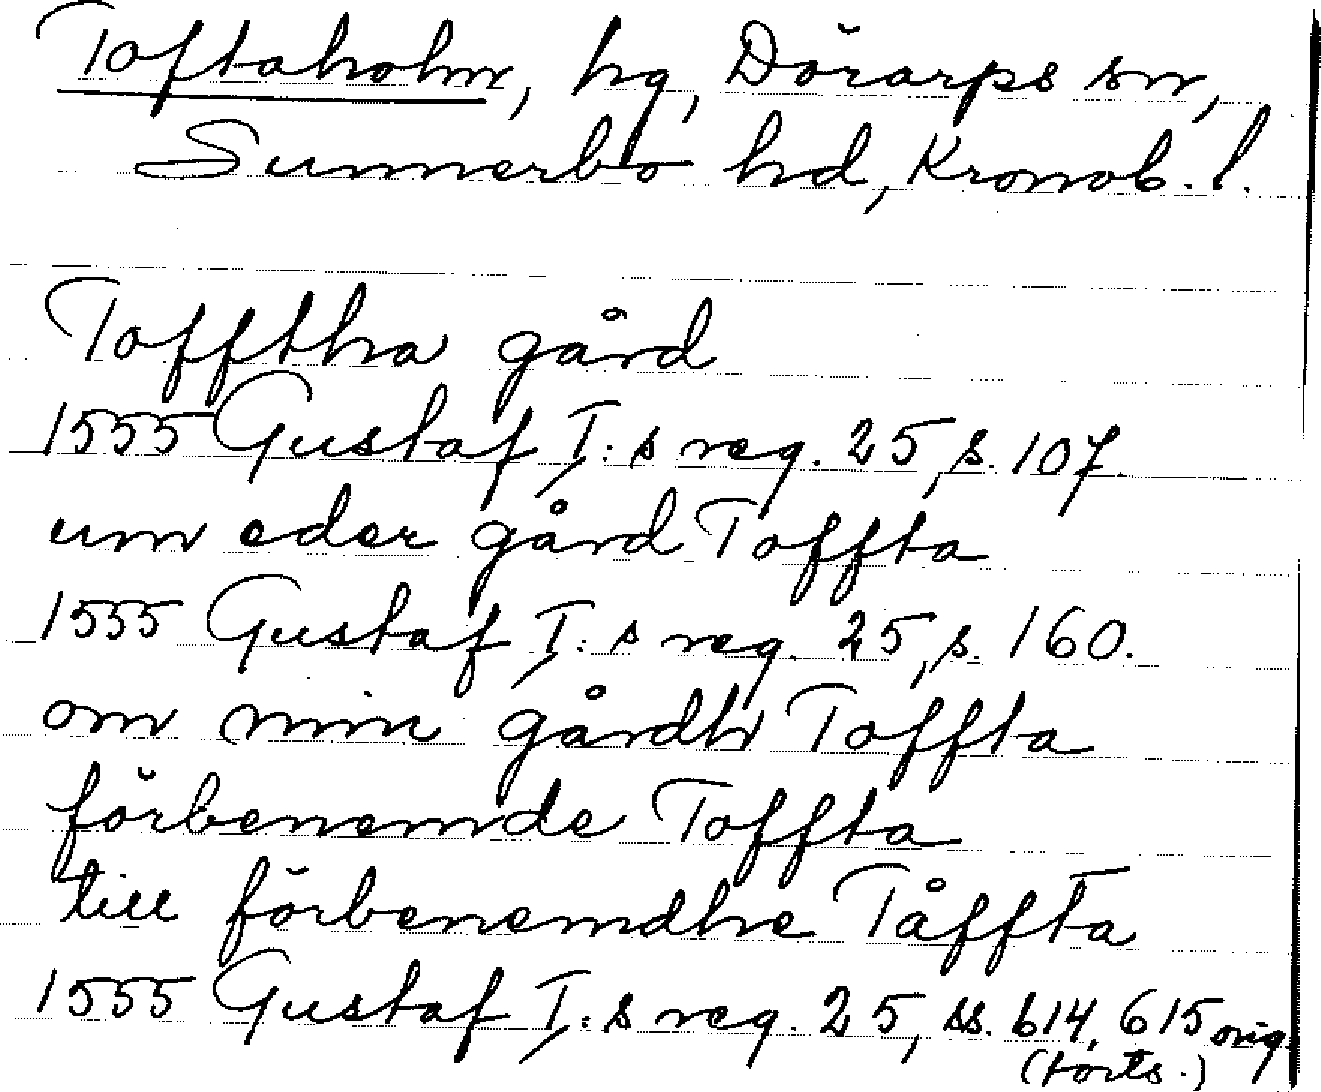 Toftaholm, hg, Dörarps sn,
Sunnerbo hd, Kronob. l.
Tofftha gård
1555 Gustaf I:s reg. 25, s. 107
um eder gård Toffta
1555 Gustaf I:s reg. 25, s. 160.
om min gårdh Toffta
förbenemde Toffta
till förbenemdhe Tåffta
1555 Gustaf I:s reg. 25, ss. 614, 615 orig.
(forts.)